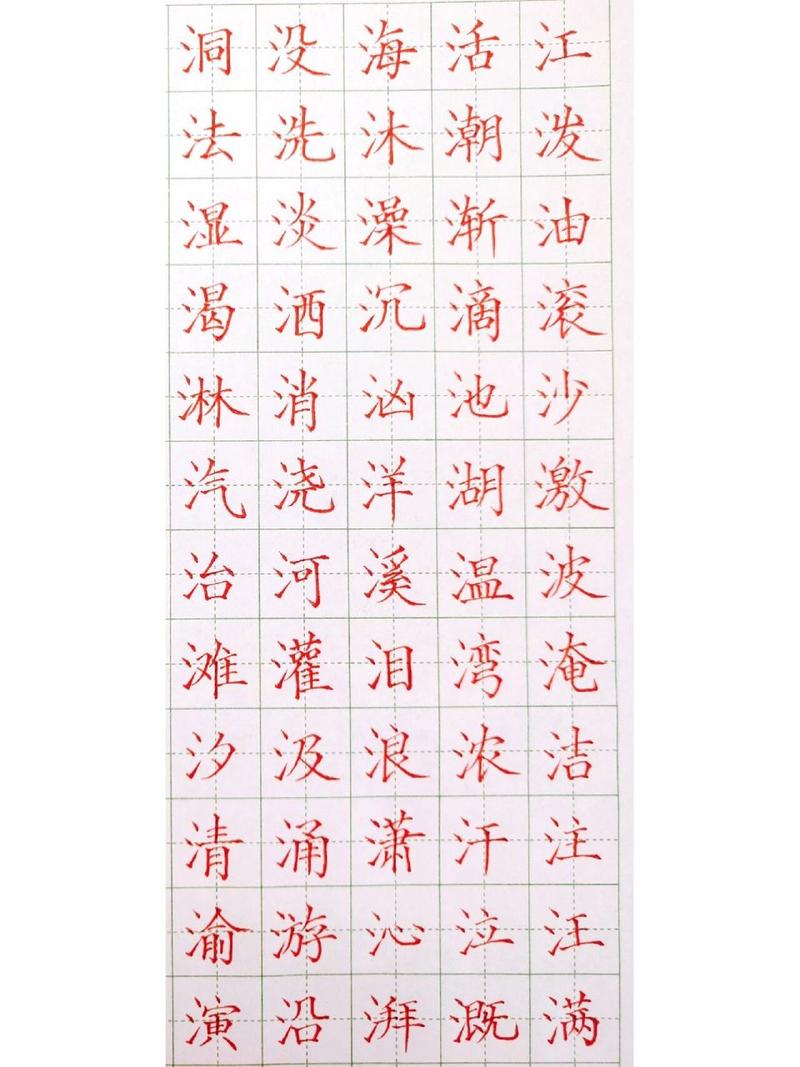 洞没海活江
法洗沐潮泼
湿淡澡渐油
渴洒沉滴滚
淋消汹池沙
汽浇洋湖激
治河溪温波
滩灌泪湾淹
汐汲浪浓洁
清涌潇汗注
渝游沁泣汪
演沿湃溉满